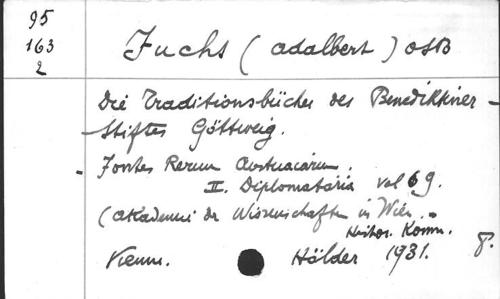 95
163
2
Fuchs (Adalbert) OSB
Die Traditionsbücher des Benediktiner-
Stiftes Göttweig.
- Fontes Rerum Austriacarum.
II. Diplomataria vol 69.
(Akademie der Wissenschaften in Wien.
Histor. Komm.
Vienne. Hölder 1931. 8.